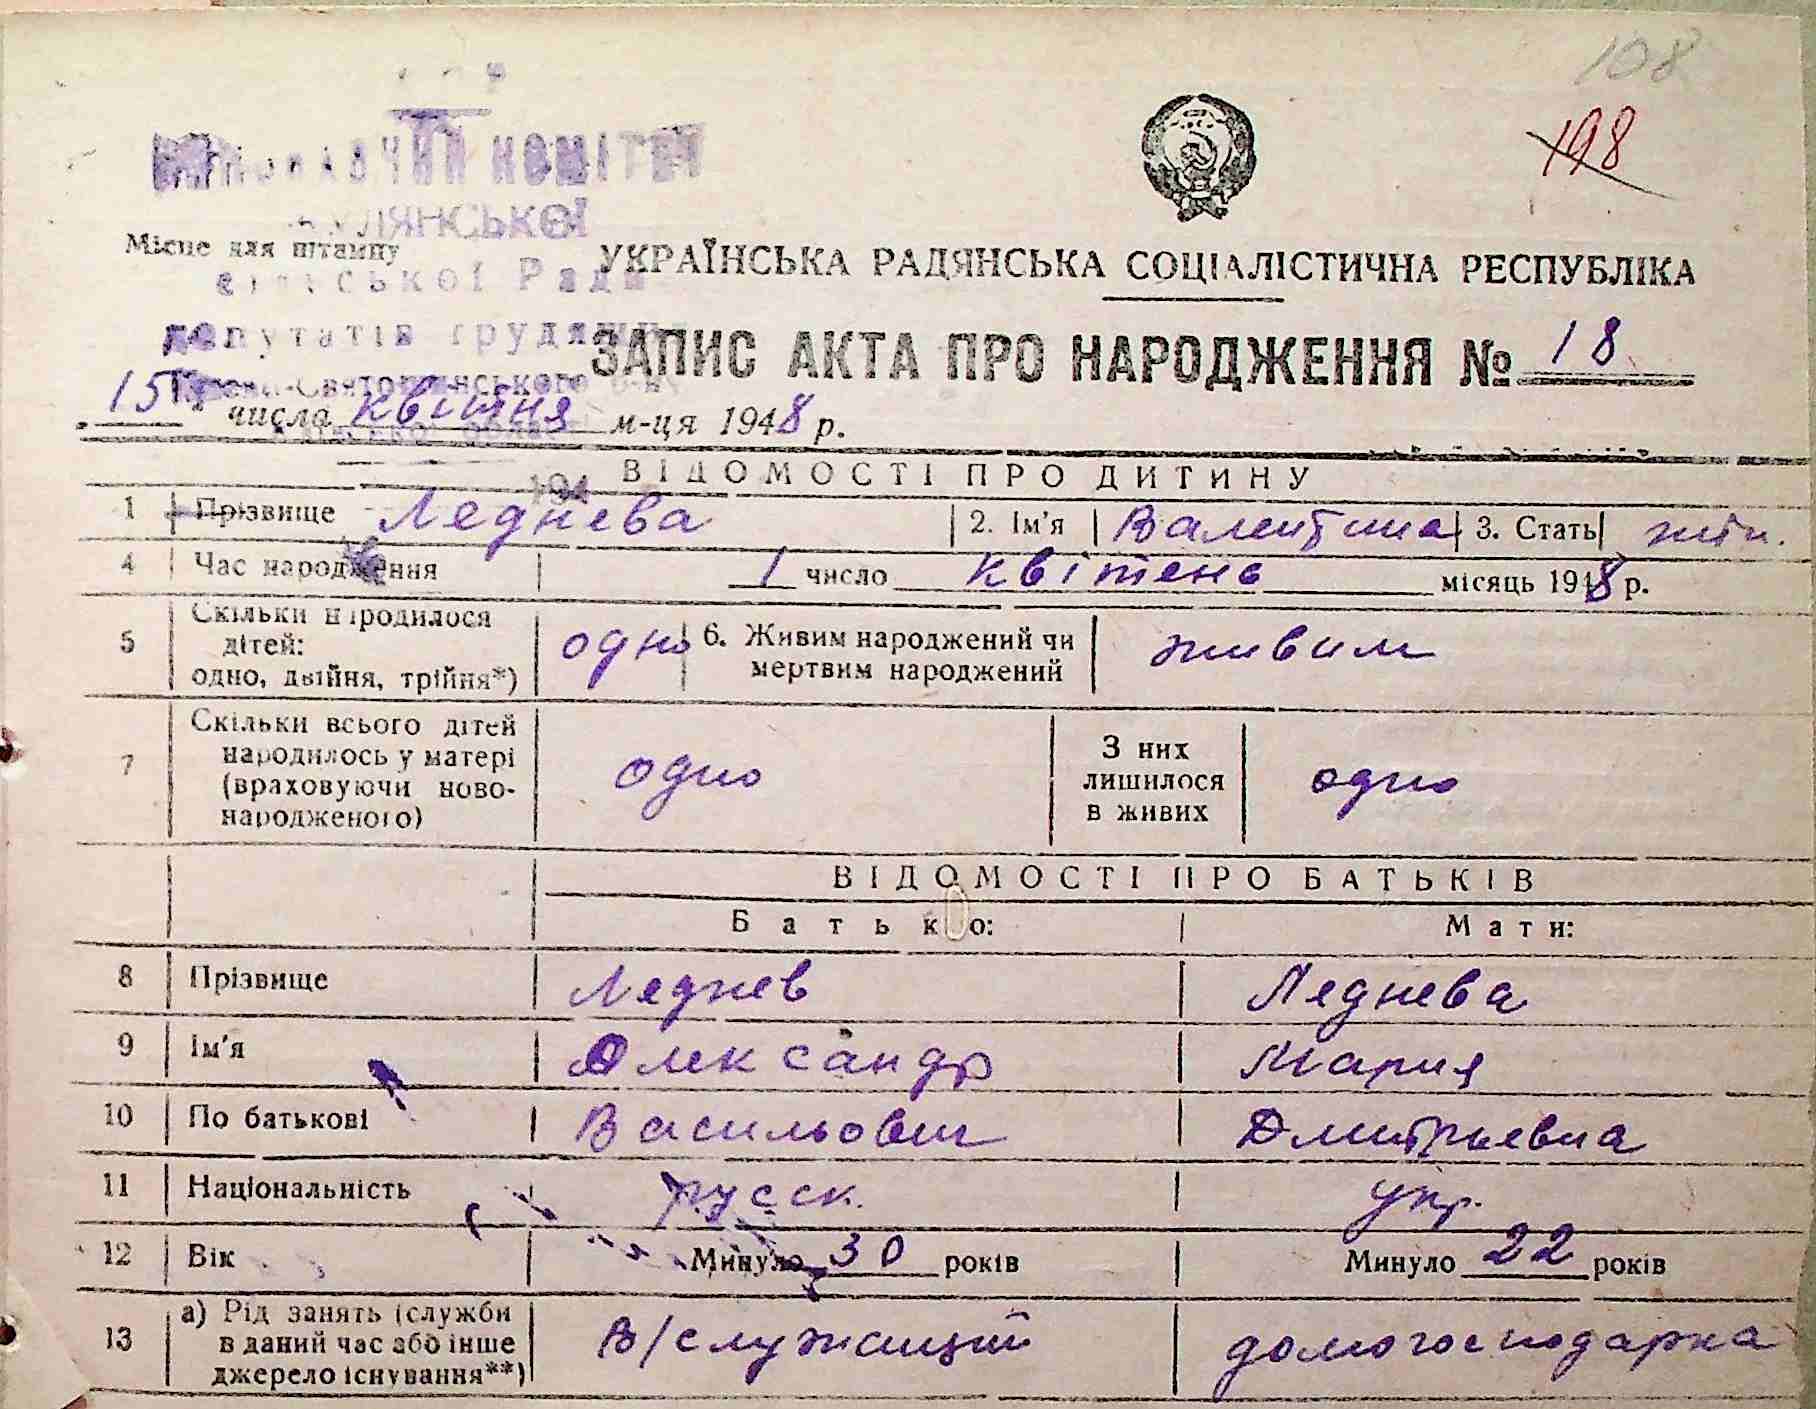 108
198
ВИКОНАВЧИЙ КОМІТЕТ
Місце для штампу
сільської Ради
УКРАЇНСЬКА РАДЯНСЬКА СОЦІАЛІСТИЧНА РЕСПУБЛІКА
депутатів трудящих
ЗАПИС АКТА ПРО НАРОДЖЕННЯ № 18
15 числа квітня м-ця 1948 р.
194
ВІДОМОСТІ ПРО ДИТИНУ
1 Прізвище Леднева 2. Ім'я Валентина 3. Стать жін.
4 Час народження 1 число квітень місяць 1948 р.
5 Скільки народилося дітей: одно, двійня, трійня*) одно 6. Живим народжений чи мертвим народжений живим
7 Скільки всього дітей народилось у матері (враховуючи новонародженого) одно З них лишилося в живих одно
ВІДОМОСТІ ПРО БАТЬКІВ
Батько: Мати:
8 Прізвище Леднев Леднева
9 Ім'я Олександр Мария
10 По батькові Васильович Дмитрьевна
11 Національність русск. укр.
12 Вік Минуло 30 років Минуло 22 років
13 а) Рід занять (служби в даний час або інше джерело існування**) В/служащий домогосподарка